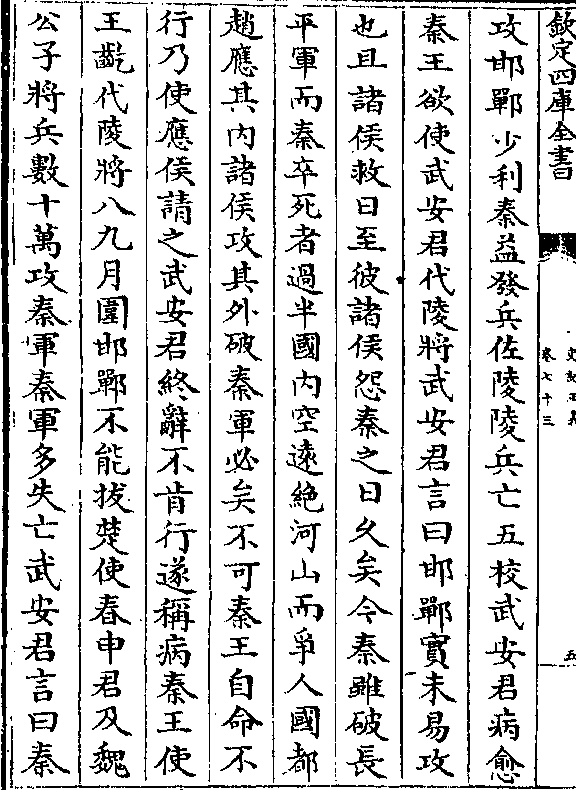 欽定四庫全書
史記正義
卷七十三
五
攻邯鄲少利秦益發兵佐陵陵兵亡五校武安君病愈
秦王欲使武安君代陵將武安君言曰邯鄲實未易攻
也且諸侯救日至彼諸侯怨秦之日久矣今秦雖破長
平軍而秦卒死者過半國内空遠絶河山而爭人國都
趙應其内諸侯攻其外破秦軍必矣不可秦王自命不
行乃使應侯請之武安君終辭不肯行遂稱病秦王使
王齕代陵將八九月圍邯鄲不能拔楚使春申君及魏
公子將兵數十萬攻秦軍秦軍多失亡武安君言曰秦